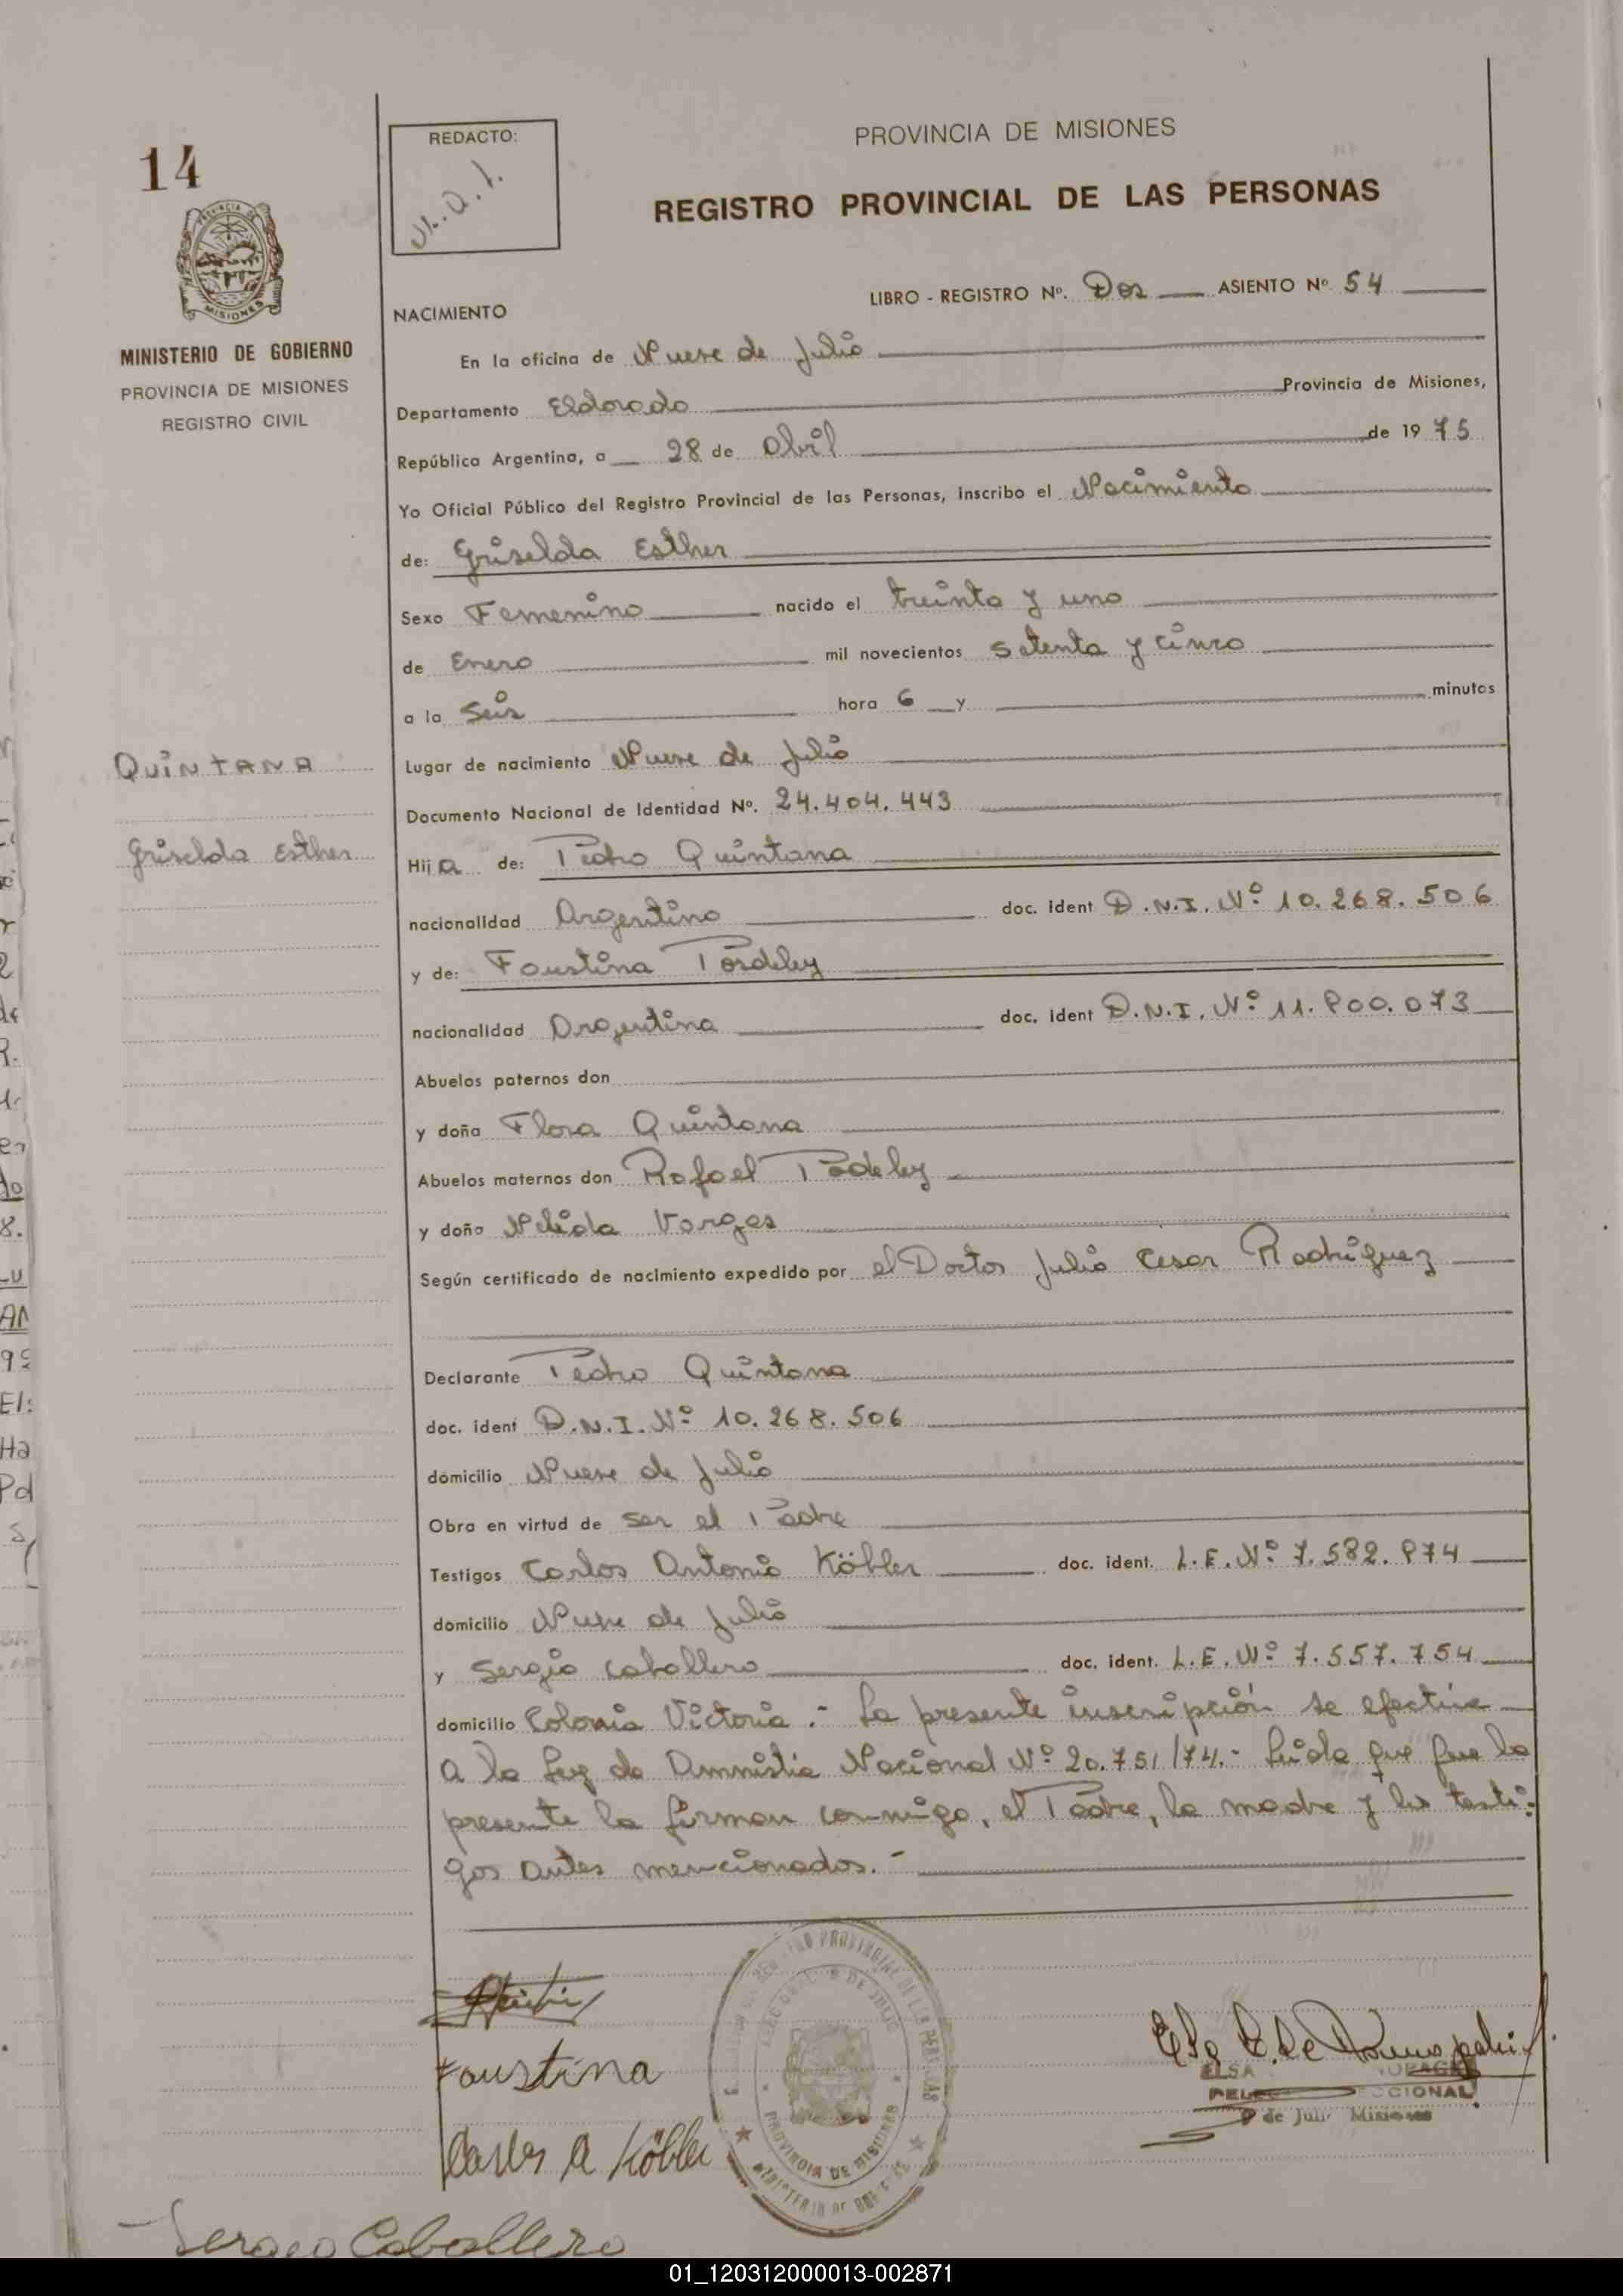 14
REDACTO:
PROVINCIA DE MISIONES
REGISTRO PROVINCIAL DE LAS PERSONAS
MISIONES
MINISTERIO DE GOBIERNO
PROVINCIA DE MISIONES
REGISTRO CIVIL
LIBRO - REGISTRO Nº. Dos ASIENTO Nº 54
NACIMIENTO
En la oficina de Nueve de Julio
Departamento Eldorado Provincia de Misiones,
República Argentina, a 28 de Abril de 19 75
Yo Oficial Público del Registro Provincial de las Personas, inscribo el Nacimiento
de: Griselda Esther
Sexo Femenino nacido el treinta y uno
de Enero mil novecientos setenta y cinco
a la seis hora 6 y minutos
QUINTANA
Lugar de nacimiento Nueve de Julio
Documento Nacional de Identidad Nº. 24.404.443
Griselda Esther
Hija de: Pedro Quintana
nacionalidad Argentino doc. ident D.N.I. Nº 10.268.506
y de: Faustina Pordeley
nacionalidad Argentina doc. ident D.N.I. Nº 11.800.073
Abuelos paternos don
y doña Flora Quintana
Abuelos maternos don Rafael
y doña Nelida Vargas
Según certificado de nacimiento expedido por el Doctor Julio Cesar Rodriguez
Declarante Pedro Quintana
doc. ident D.N.I. Nº 10.268.506
domicilio Nueve de Julio
Obra en virtud de ser el Padre
Testigos Carlos Antonio Köbler doc. ident. L.E. Nº 7.582.874
domicilio Nueve de Julio
y Sergio Caballero doc. ident. L.E. Nº 7.557.754
domicilio Colonia Victoria.- La presente inscripción se efectúa
a la Ley de Amnistia Nacional Nº 20.751/74.- Leida que fue la
presente la firman conmigo, el Padre, la madre y los testi-
gos antes mencionados.-
Faustina
Carlos A Köbler
Sergio Caballero
PROVINCIA DE MISIONES
ELSA
9 de Julio Misiones
01_120312000013-002871